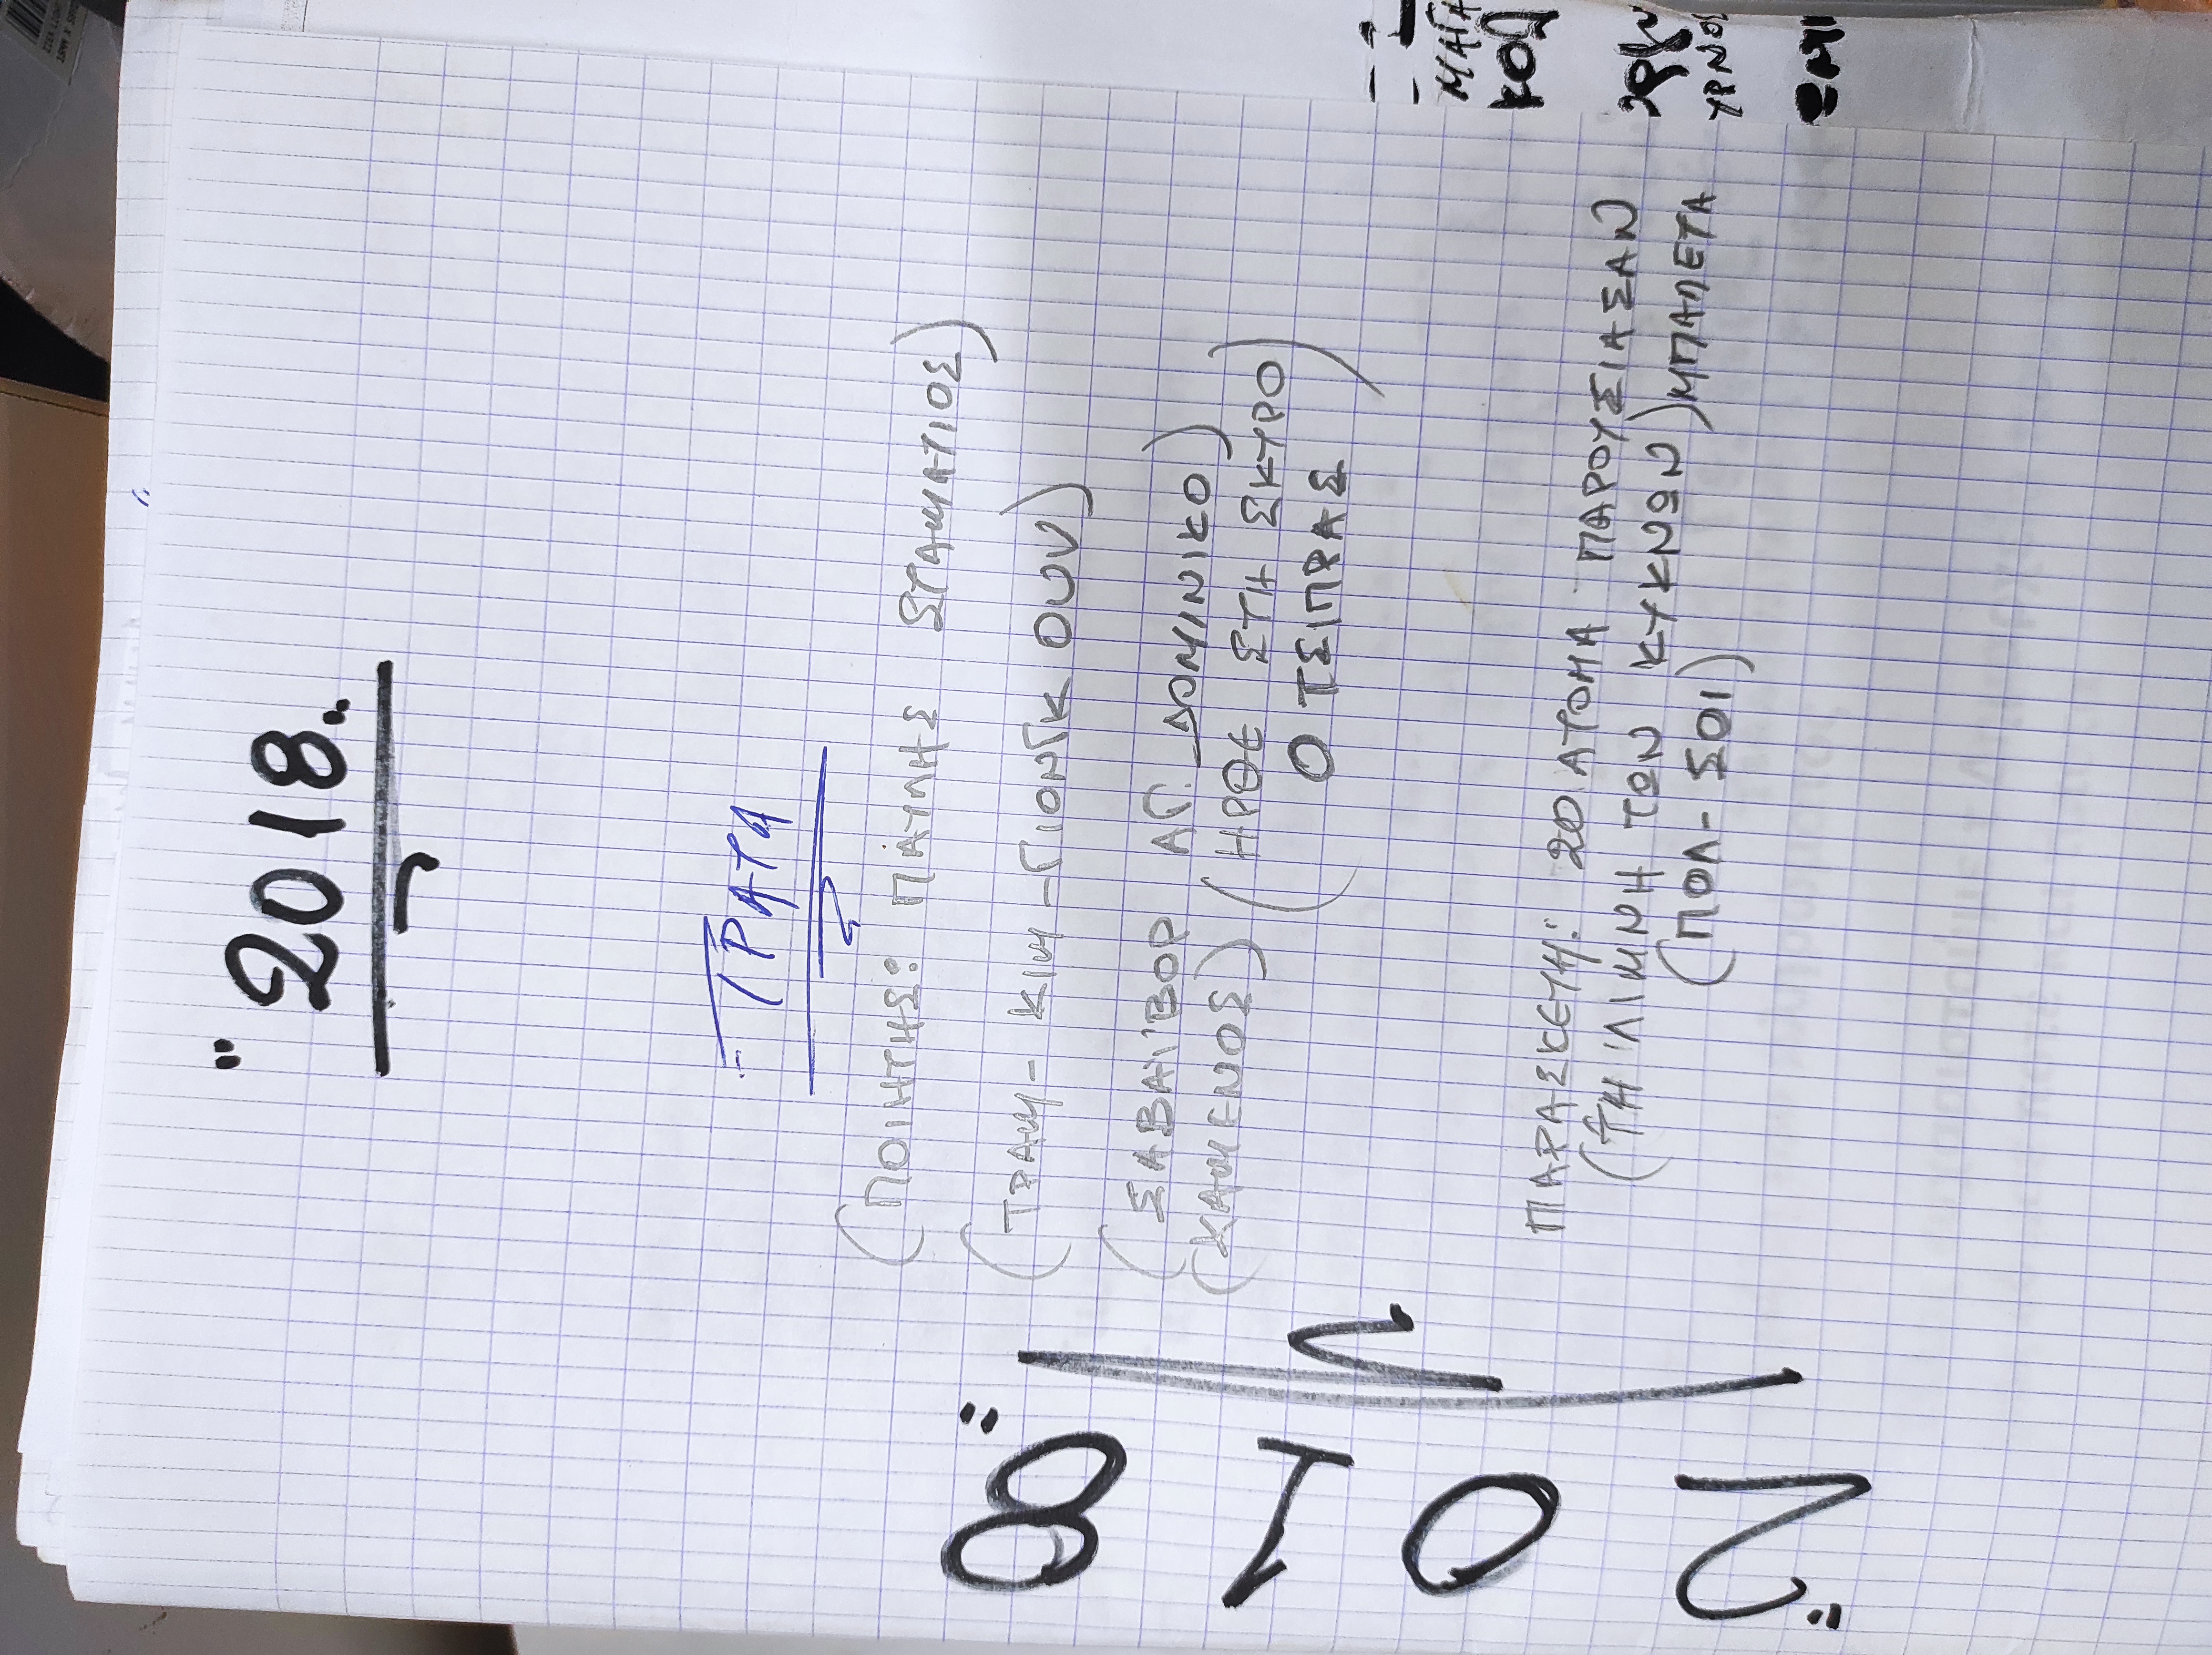 "2018"
ΤΡΑΤΑ
(ΠΟΙΗΤΗΣ: ΠΑΥΛΗΣ ΣΤΑΜΑΤΙΟΣ)
(ΤΡΑΜ - ΚΙΜ - ΓΙΟΝΓΚ ΟΥΝ)
(ΣΑΒΒΑΪΒΟΡ ΑΓ. ΔΟΜΙΝΙΚΟ)
(ΚΑΜΕΝΟΣ) (ΗΡΘΕ ΣΤΗ ΣΚΥΡΟ)
Ο ΤΣΙΠΡΑΣ
ΠΑΡΑΣΚΕΥΗ: 20 ΑΤΟΜΑ ΠΑΡΟΥΣΙΑΣΑΝ
(ΤΗ ΛΙΜΝΗ ΤΩΝ ΚΥΚΝΩΝ) ΜΠΑΛΕΤΑ
(ΠΟΛ - ΣΟΙ)
"2018"